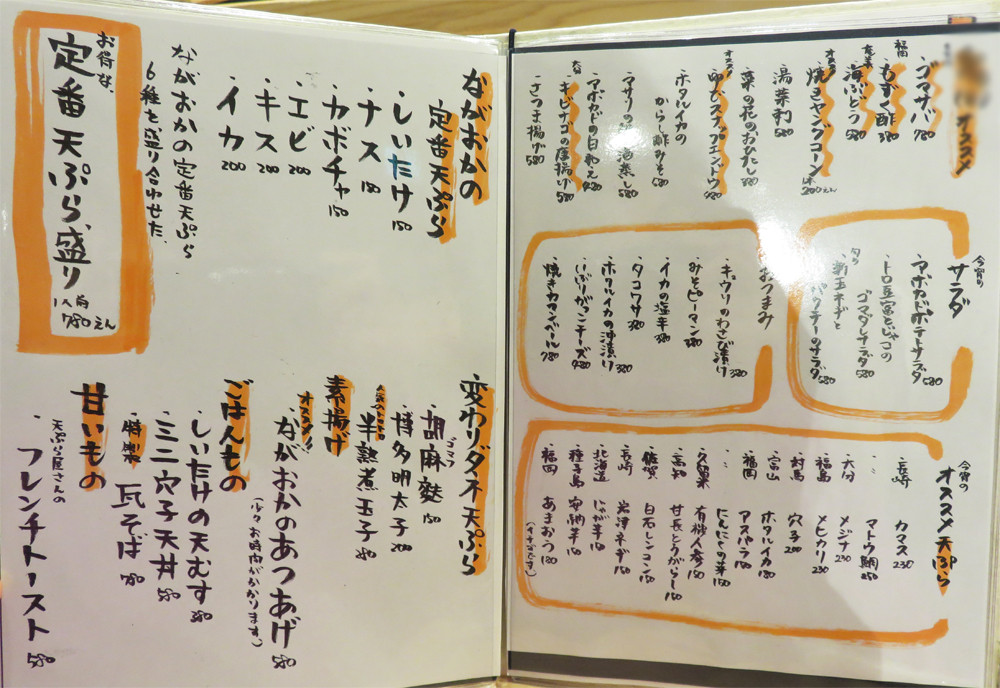 オススメ
福岡
ゴマサバ 780
もずく酢 480
海ぶどう 580
オススメ
焼きヤングコーン 1本 200えん
湯葉刺 580
菜の花のおひたし 580
オススメ
スナップエンドウ 480
ホタルイカの
からし酢みそ 680
アサリの酒蒸し 580
アボカドの白わえ 480
キビナゴの唐揚げ 580
さつま揚げ 580
今宵の
サラダ
アボカドポテトサラダ 580
トロ豆富とじゃこの
ゴマダレサラダ 580
新玉ネギと
パクチーのサラダ 580
おつまみ
キュウリのわさび漬け 380
みそピーマン 380
イカの塩辛 380
タコワサ 380
ホタルイカの沖漬け 380
いぶりがっこチーズ 480
焼きカマンベール 780
今宵の
オススメ天ぷら
・長崎 カマス 230
・〃 マトウ鯛 250
・大分 メジナ 230
・福島 メヒカリ 230
・対馬 穴子 200
・富山 ホタルイカ 180
・福岡 アスパラ 180
・〃 にんにくの芽 150
・久留米 有機人参 150
・高知 甘長とうがらし 150
・佐賀 白石レンコン 150
・長崎 岩津ネギ 150
・北海道 じゃが芋 150
・種子島 安納芋 150
・福岡 あまおう 180
(イチゴです)
ながおかの
定番天ぷら
・しいたけ 150
・ナス 150
・カボチャ 150
・エビ 200
・キス 200
・イカ 200
ながおかの定番天ぷら
6種を盛り合わせた、
お得な、
定番天ぷら盛り
1人前 780えん
変わりダネ天ぷら
ゴマフ
・胡麻麩 150
・博多明太子 200
・半熟煮玉子 250
素揚げ
オススメ!!
・ながおかのあつあげ 580
(少々お時間がかかります)
ごはんもの
・しいたけの天むす 380
・ミニ穴子天丼 580
・特製 瓦そば 780
甘いもの
天ぷら屋さんの
・フレンチトースト 580